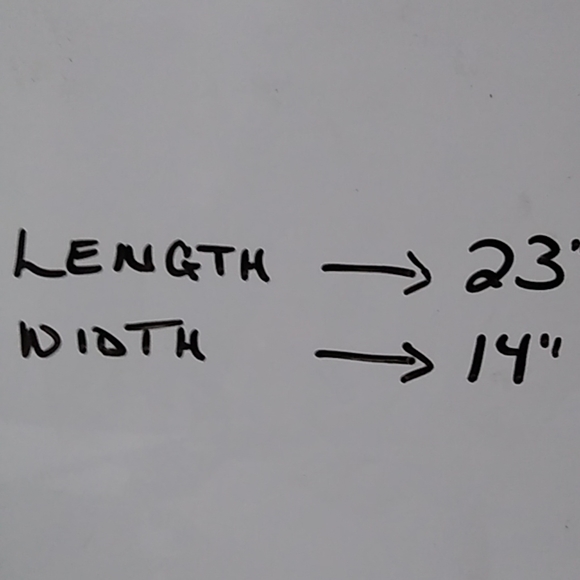 LENGTH → 23"
WIDTH → 14"